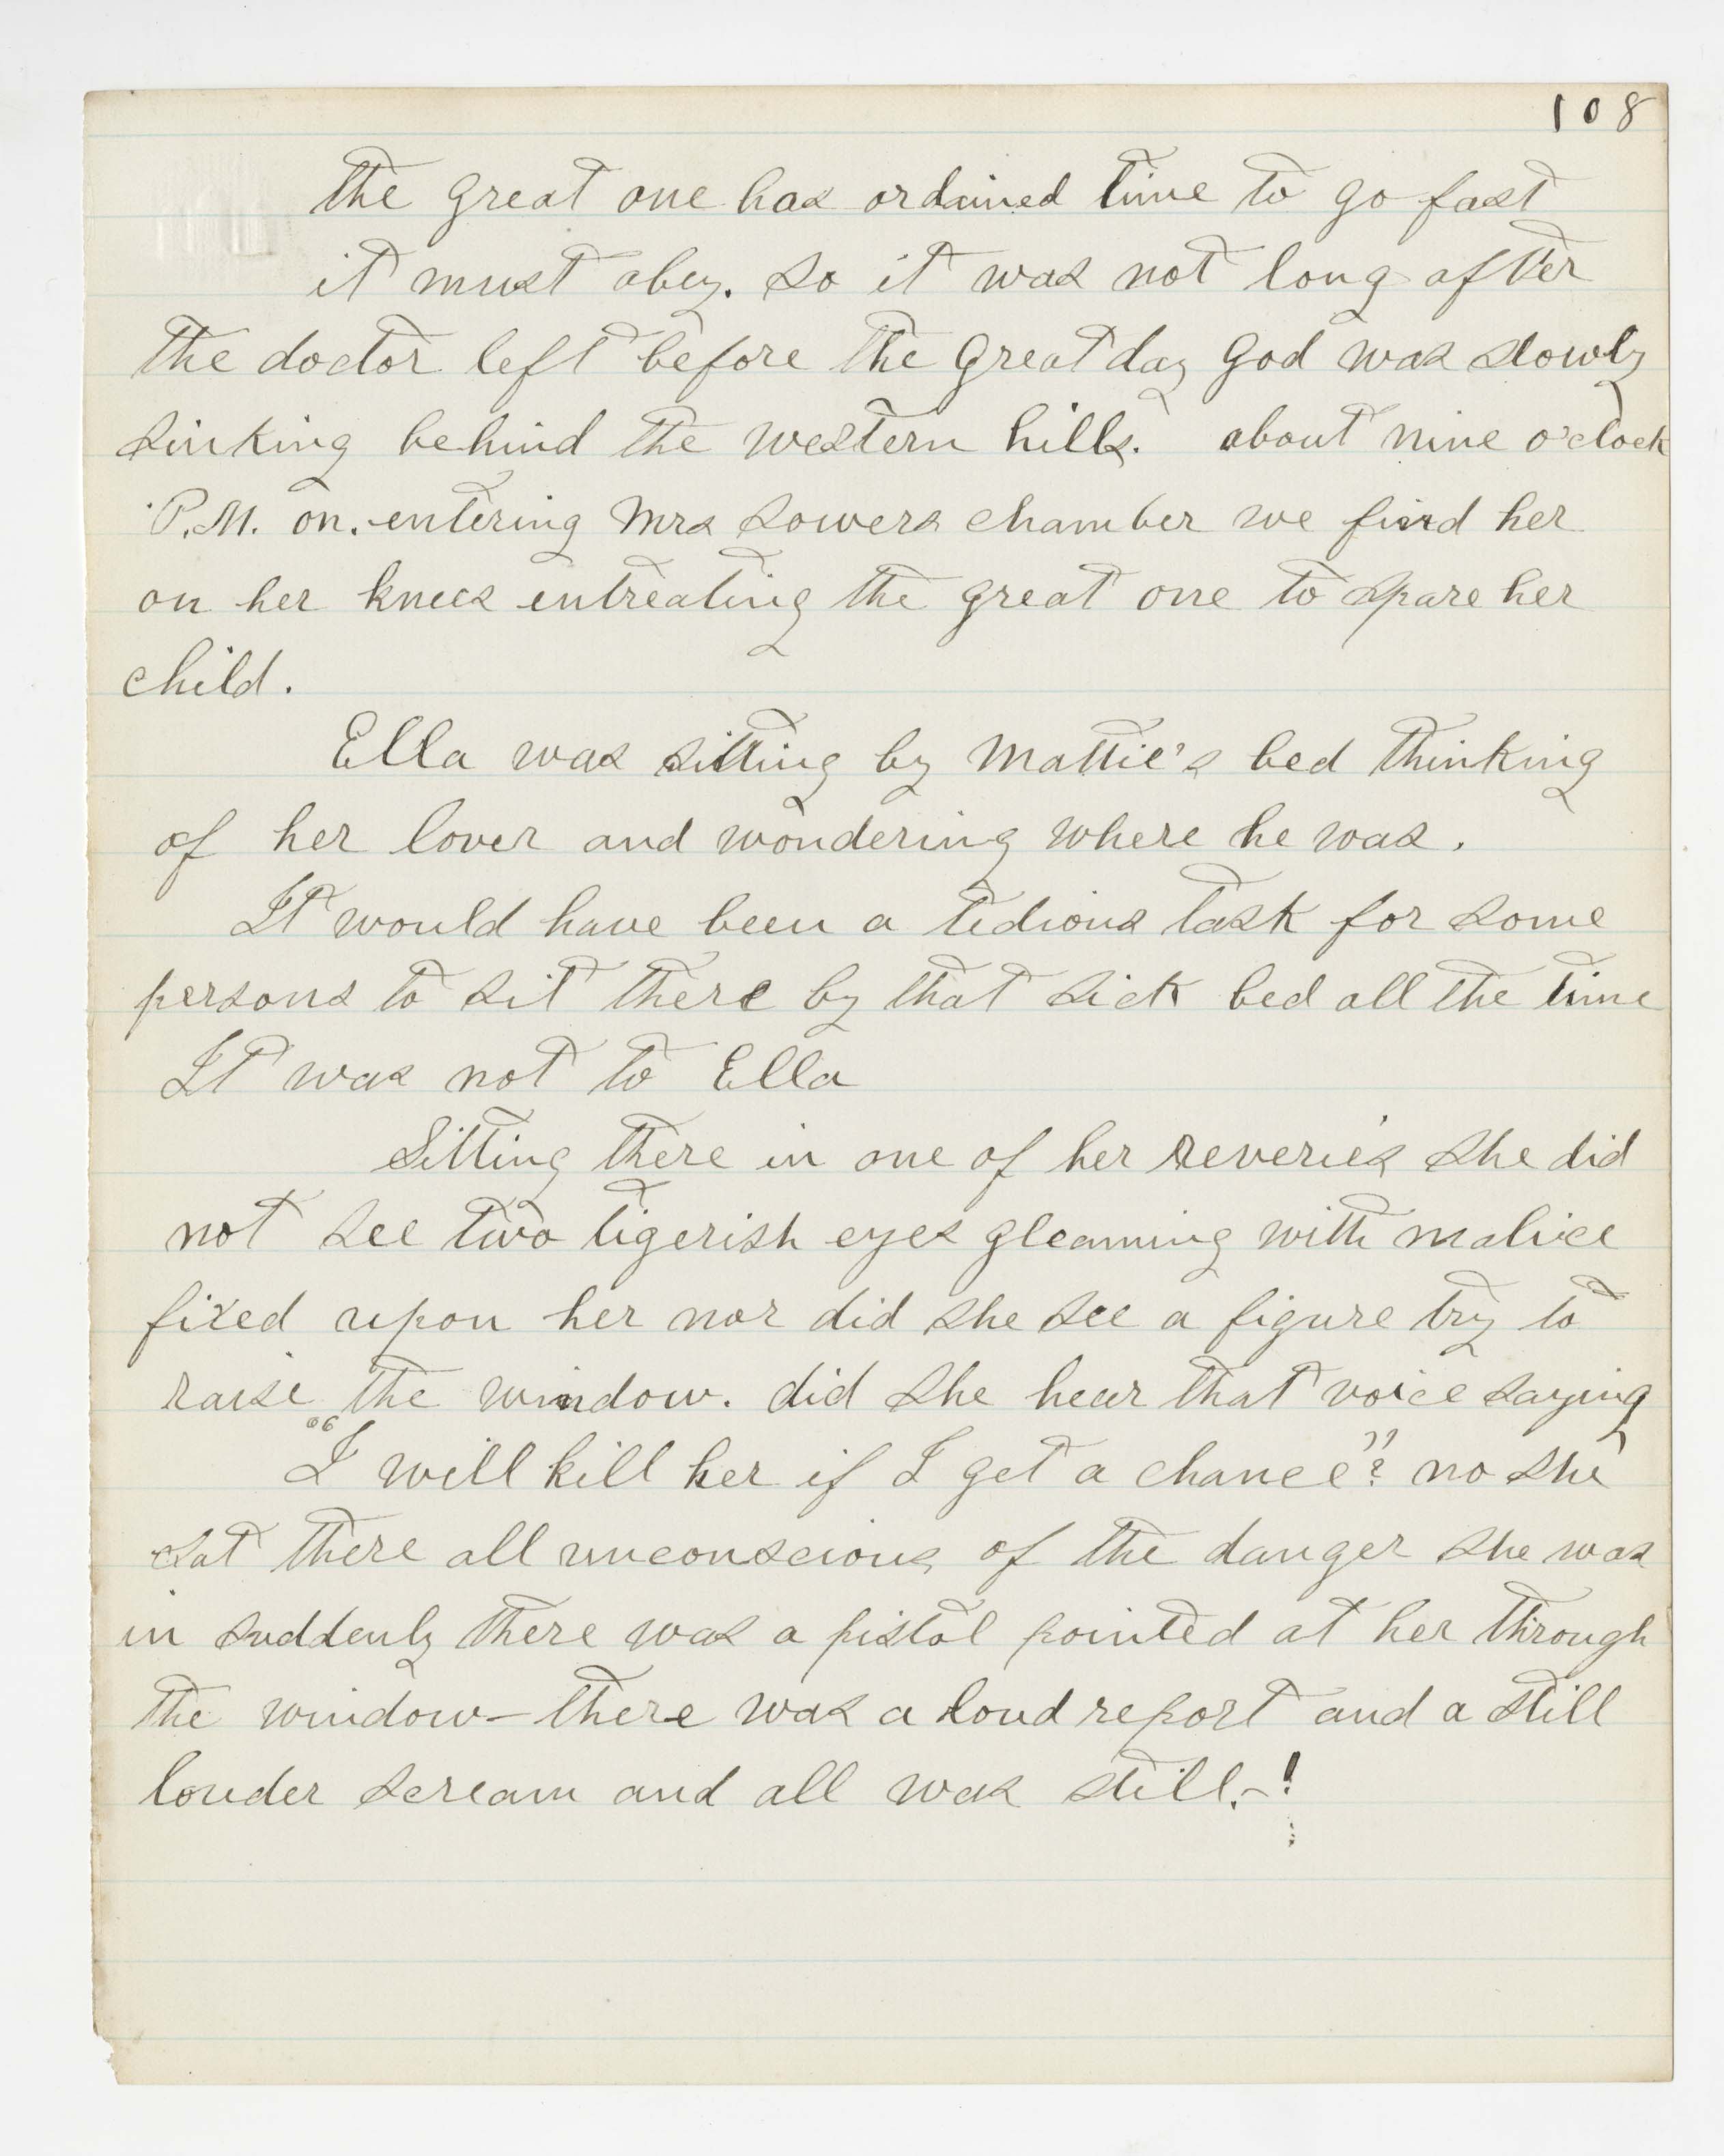 108
the great one has ordained time to go fast
it must obey. So it was not long after
the doctor left before the great day god was slowly
sinking behind the western hills. about nine o'clock
P.M. on. entering Mrs Sowers chamber we find her
on her knees entreating the great one to spare her
child.
Ella was sitting by Mattie's bed thinking
of her lover and wondering where he was.
It would have been a tedious task for some
persons to sit there by that sick bed all the time
It was not to Ella
Sitting there in one of her reverie's she did
not see two tigerish eyes gleaming with malice
fixed upon her nor did she see a figure try to
raise the window. did she hear that voice saying
"I will kill her if I get a chance"? no she
sat there all unconscious of the danger she was
in suddenly there was a pistol pointed at her through
the window—there was a loud report and a still
louder scream and all was still.-!